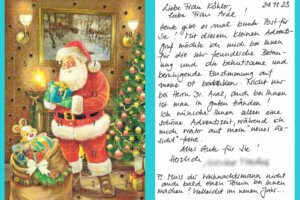 24.11.23
Liebe Frau Köhler,
liebe Frau Arat!
Heute gibt es mal bunte Post für
Sie! Mit diesem kleinen Advents-
gruß möchte ich mich bei Ihnen
für die sehr freundliche Betreu-
ung und die behutsame und
beruhigende Einstimmung auf
meine OP bedanken! Nicht nur
bei Herrn Dr. Arat, auch bei Ihnen
ist man in guten Händen!
Ich wünsche Ihnen allen eine
schöne Adventszeit, während ich
mich weiter auf mein neues "Ge-
sicht" freue.
Alles Gute für Sie!
Herzlich
PS: Muss der Weihnachtsmann nicht
auch bald einen Termin bei Ihnen
machen? Vielleicht im neuen Jahr...